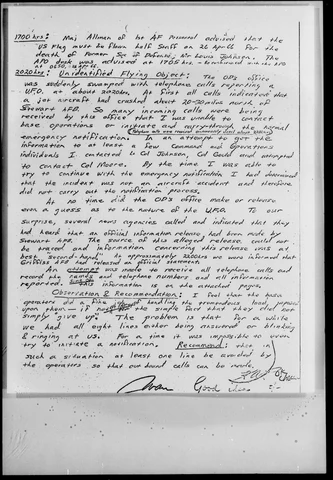 1700 hrs: Maj Allman of hq AF Personnel advised that the
US Flag must be flown half staff on 26 Apr 66 for the
death of Former Sec of Defense, Mr Louis Johnson. The
APO desk was advised at 1705 hrs -
2020 hrs: Unidentified Flying Object: The OPS office
was suddenly swamped with telephone calls reporting a
U.F.O. at about 2020 hrs. At first all calls indicated that
a jet aircraft had crashed about 20-30 miles north of
Stewart AFB. So many incoming calls were being
received by this office that I was unable to contact
base operations or initiate and carry through the normal
emergency notification. In an attempt to get the
information to at least a few Command and Operations
individuals I contacted Lt Col Johnson, Col Gould and attempted
to contact Col Moore. By the time I was able to
try to continue with the emergency notification I had determined
that the incident was not an aircraft accident and therefore
did not carry out the notification process.
At no time did the OPS office make or release
even a guess as to the nature of the UFO. To our
surprise, several news agencies called and indicated that they
had heard that an official information release had been made by
Stewart AFB. The source of this alleged release could not
be traced and information concerning this release was at
best second-hand. At approximately 2200 hrs we were informed that
Griffiss AFB had released an official statement.
An attempt was made to receive all telephone calls and
record the names and telephone numbers and all information
reported. This information is on the attached pages.
Observation & Recommendation: I feel that the base
operators did a fine job handling the tremendous load imposed
upon them - if not for the simple fact that they did not
simply "give up". The problem is that for a while
we had all eight lines either being answered or blinking
& ringing at us. For a time it was impossible to even
try to initiate a notification. Recommend: that in
such a situation at least one line be avoided by
the operators, so that our calls can be made.
Good